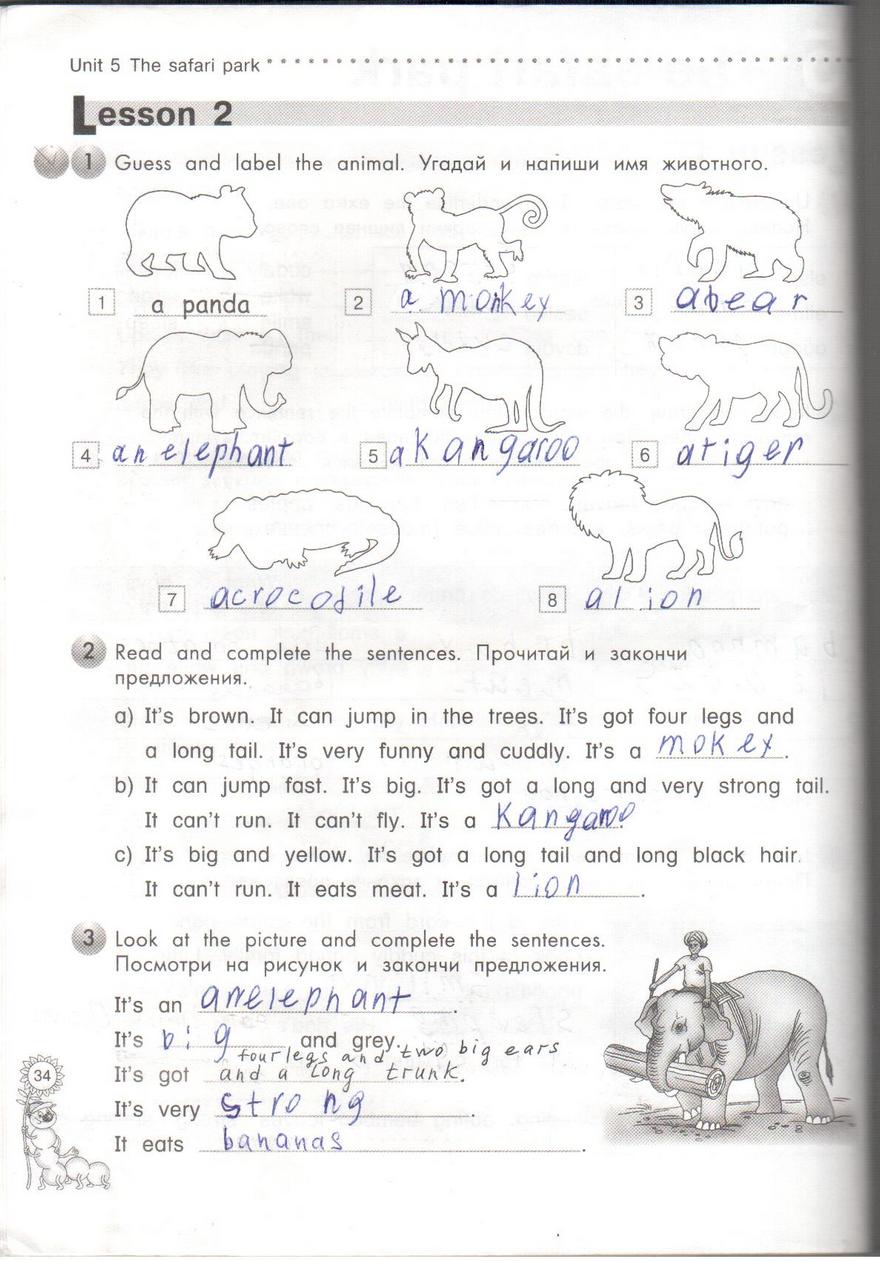 Unit 5 The safari park
Lesson 2
1 Guess and label the animal. Угадай и напиши имя животного.
1 a panda 2 a monkey 3 a bear
4 an elephant 5 a kangaroo 6 a tiger
7 a crocodile 8 a lion
2 Read and complete the sentences. Прочитай и закончи
предложения.
a) It's brown. It can jump in the trees. It's got four legs and
a long tail. It's very funny and cuddly. It's a mokey.
b) It can jump fast. It's big. It's got a long and very strong tail.
It can't run. It can't fly. It's a Kangaroo.
c) It's big and yellow. It's got a long tail and long black hair.
It can't run. It eats meat. It's a lion.
3 Look at the picture and complete the sentences.
Посмотри на рисунок и закончи предложения.
It's an an elephant.
It's big and grey.
four legs and two big ears
It's got and a long trunk.
It's very strong.
It eats bananas.
34